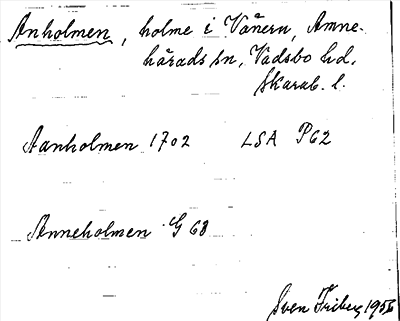 Anholmen, holme i Vänern, Amne-
härads sn, Vadsbo hd,
Skarab. l.
Aanholmen 1702 LSA P62
Anneholmen G 68
Sven Friberg